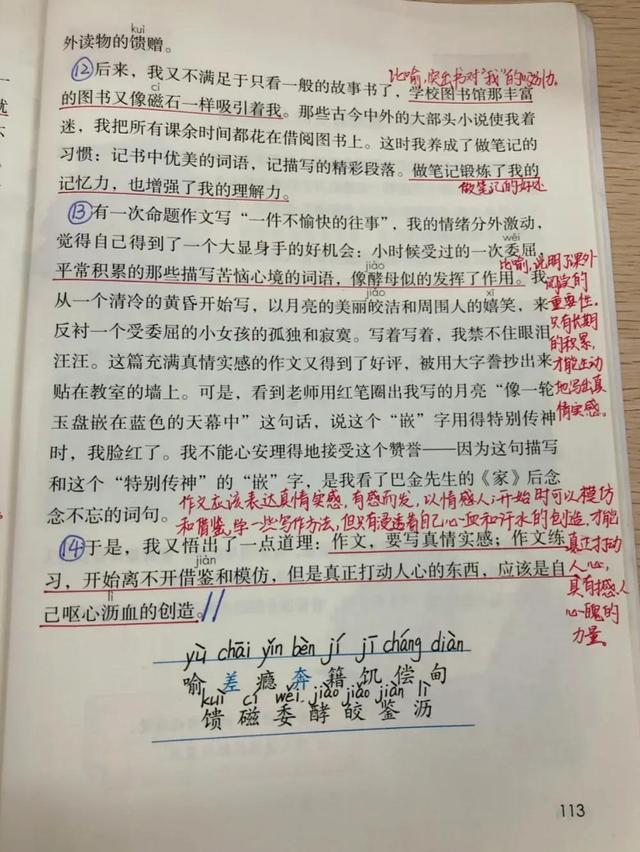 kuì
外读物的馈赠。
⑫后来，我又不满足于只看一般的故事书了，学校图书馆那丰富
比喻，突出书对“我”的吸引力。
cí
的图书又像磁石一样吸引着我。那些古今中外的大部头小说使我着
迷，我把所有课余时间都花在借阅图书上。这时我养成了做笔记的
习惯：记书中优美的词语，记描写的精彩段落。做笔记锻炼了我的
记忆力，也增强了我的理解力。
做笔记的好处
⑬有一次命题作文写“一件不愉快的往事”，我的情绪分外激动，
wěi
觉得自己得到了一个大显身手的好机会：小时候受过的一次委屈，
jiào
平常积累的那些描写苦恼心境的词语，像酵母似的发挥了作用。我
jiǎo xī
从一个清冷的黄昏开始写，以月亮的美丽皎洁和周围人的嬉笑，来
反衬一个受委屈的小女孩的孤独和寂寞。写着写着，我禁不住眼泪
汪汪。这篇充满真情实感的作文又得到了好评，被用大字誊抄出来
贴在教室的墙上。可是，看到老师用红笔圈出我写的月亮“像一轮
玉盘嵌在蓝色的天幕中”这句话，说这个“嵌”字用得特别传神
时，我脸红了。我不能心安理得地接受这个赞誉——因为这句描写
和这个“特别传神”的“嵌”字，是我看了巴金先生的《家》后念
念不忘的词句。
比喻，说明了课外
阅读的
重要性。
只有长期
的积累，
才能生动
地写出真
情实感。
作文应该表达真情实感，有感而发，以情感人；开始时可以模仿
和借鉴，学一些写作方法，但只有浸透着自己心血和汗水的创造，才能
真正打动
人心，
具有撼人
心魄的
力量。
⑭于是，我又悟出了一点道理：作文，要写真情实感；作文练
jiàn
习，开始离不开借鉴和模仿，但是真正打动人心的东西，应该是自
lì
己呕心沥血的创造。
yù chāi yǐn bèn jí jī cháng diàn
喻 差 瘾 奔 籍 饥 偿 甸
kuì cí wěi jiào jiǎo jiàn lì
馈 磁 委 酵 皎 鉴 沥
113